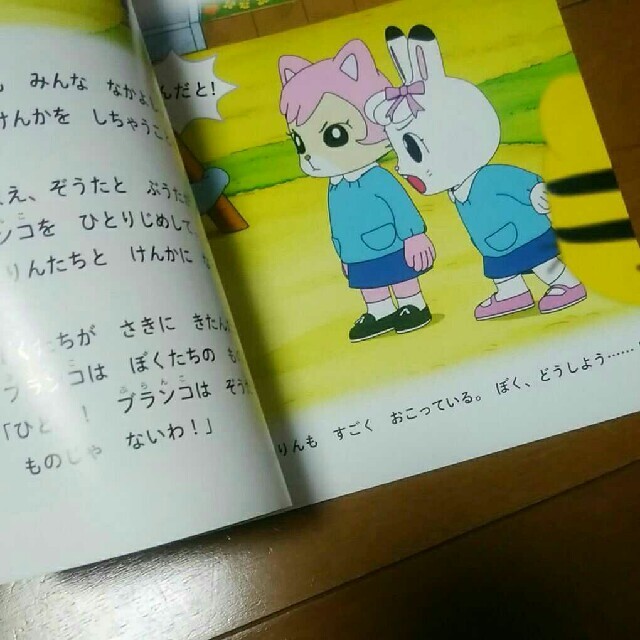 みんな なかよし
けんかを しちゃうこ
え、ぞうたと ぶうた
ンコを ひとりじめして
りんたちと けんかに
ちが さきに きたん
ブランコは ぼくたちの もの
「ひど ! ブランコは ぞうた
ものじゃ ないわ！」
んだと!
りんも すごく おこっている。 ぼく、どうしよう……